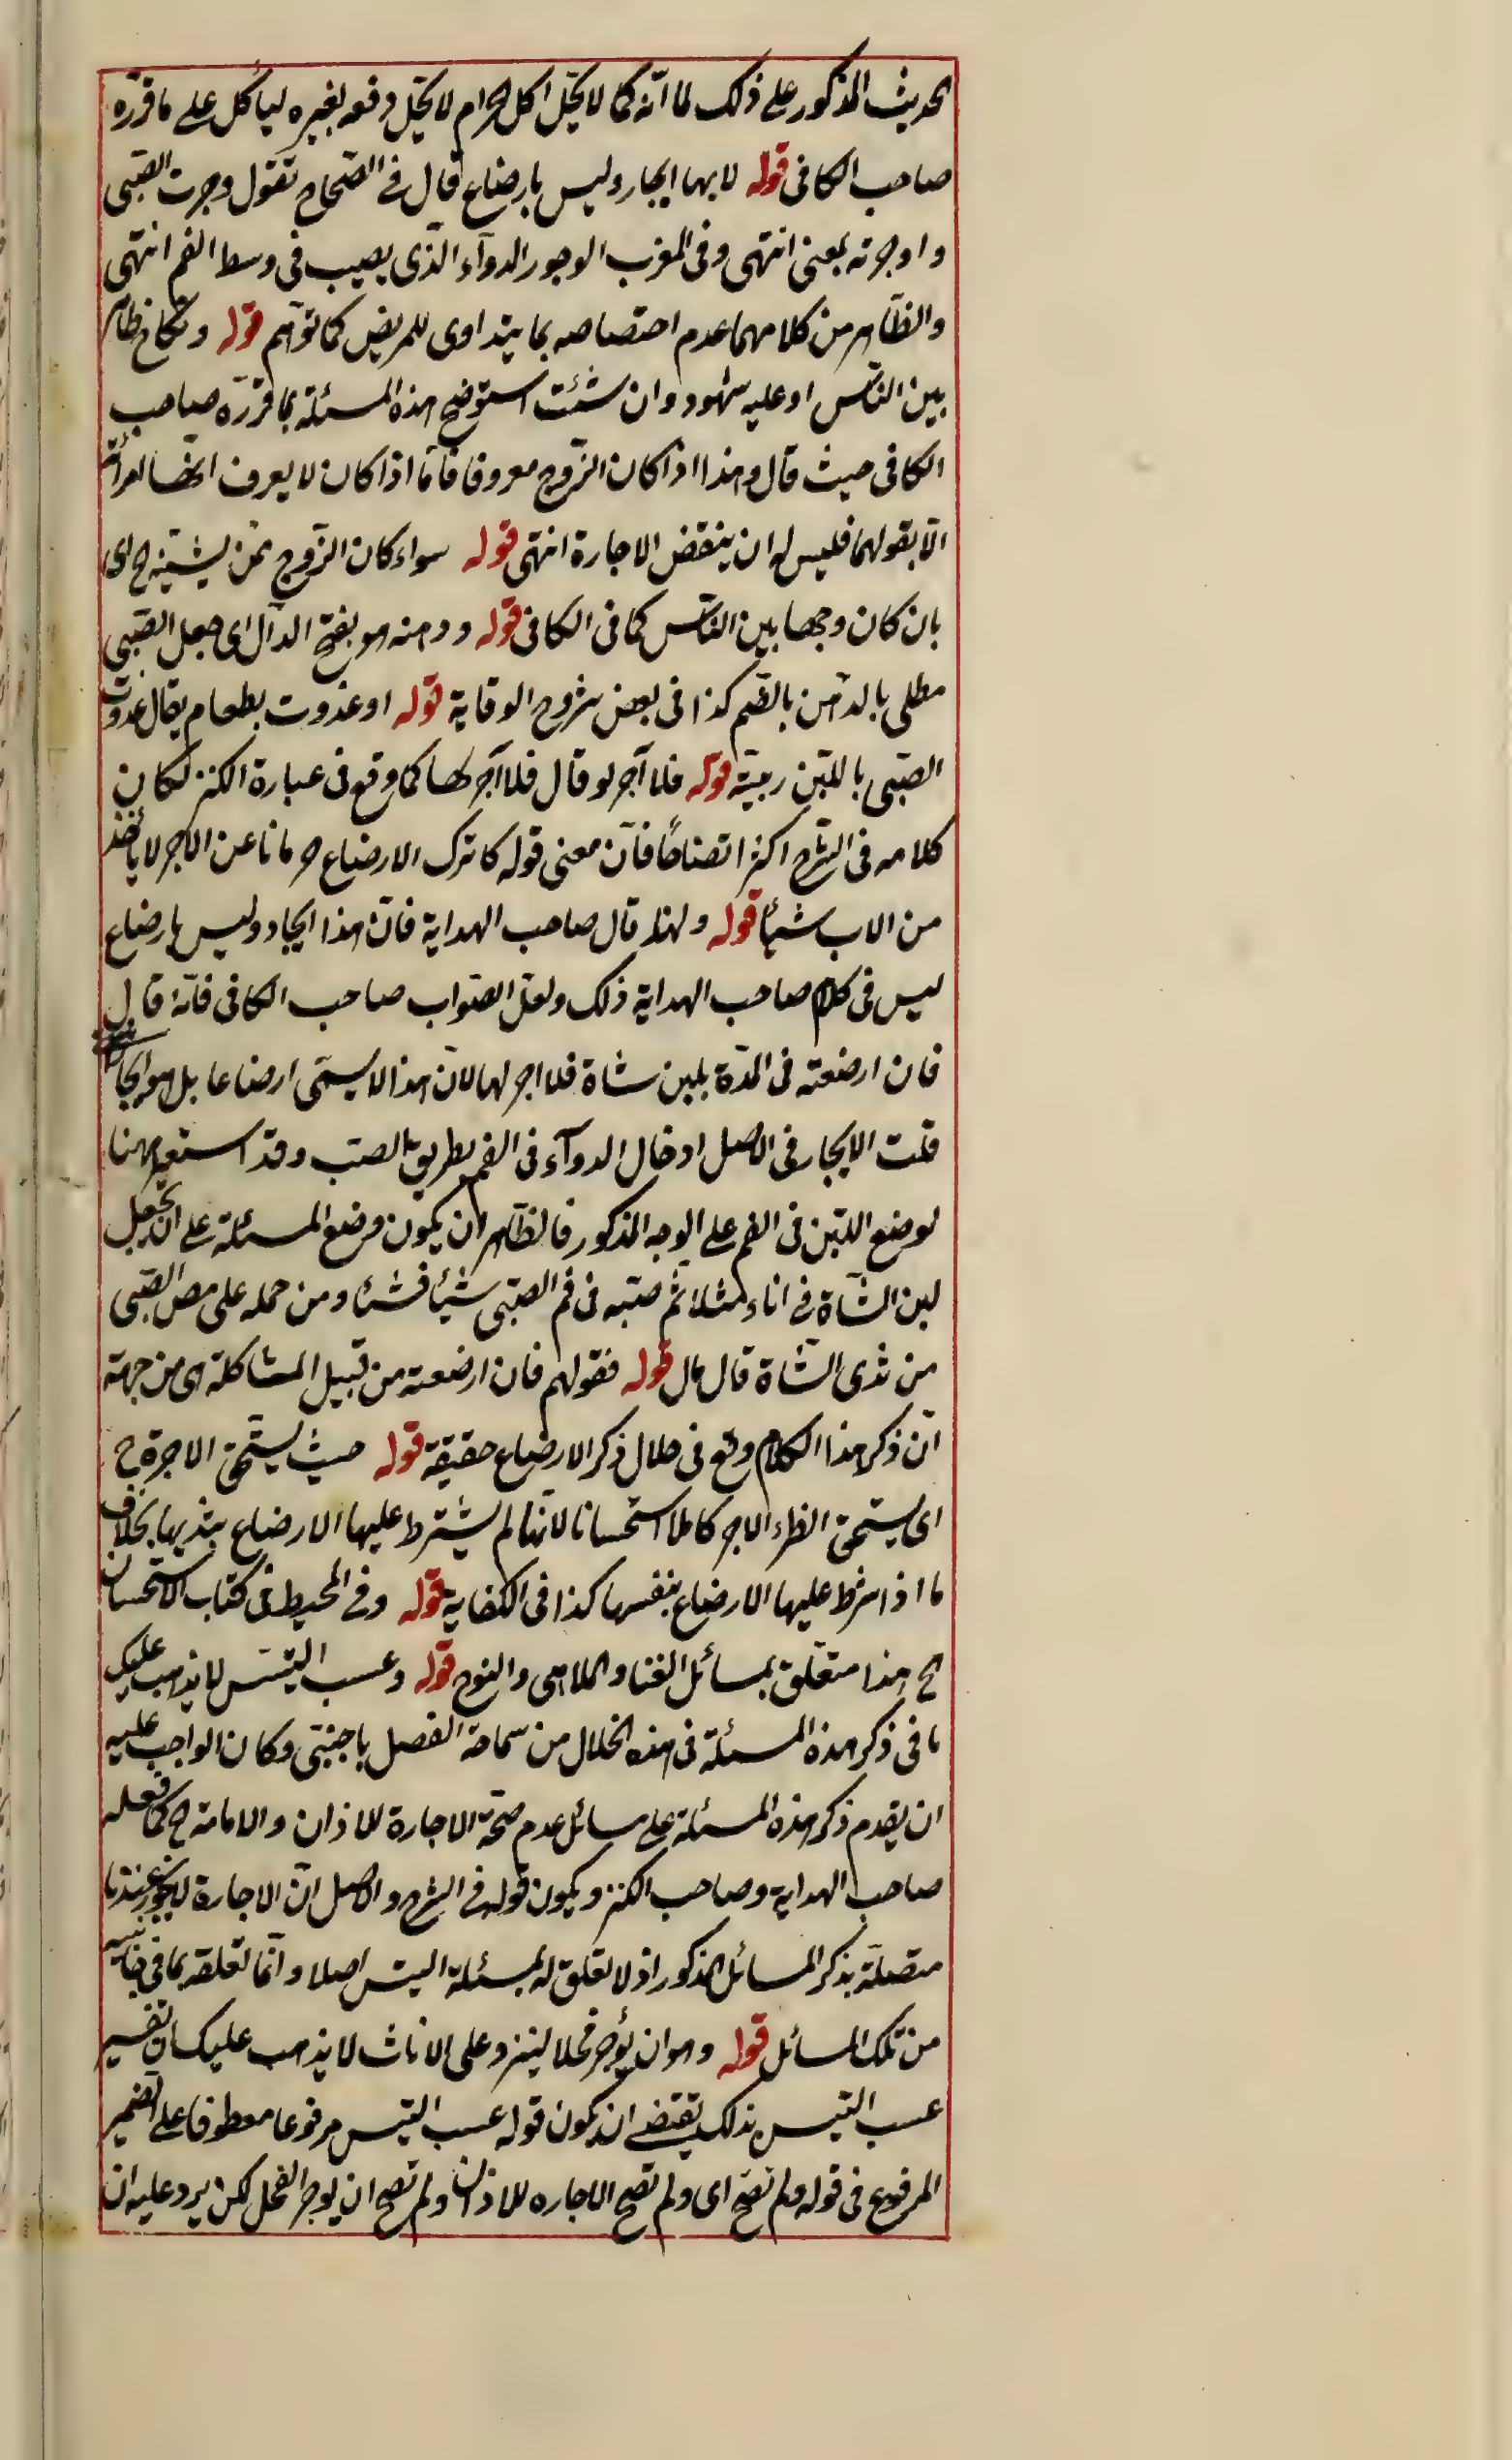 الحديث المذكور على ذلك لما انه كما لا يحل اكل الحرام لا يحل دفعه لغيره ليأكل على ما قرره
صاحب الكافى قوله لانها ايجار وليس بارضاع قال فى الصحاح تقول وجرت الصبى
واوجرته بمعنى انتهى وفى المغرب الوجور الدوآء الذى يصيب فى وسط الفم انتهى
والظاهر من كلامهما عدم اختصاصه بما يتداوى للمريض كما توهم قوله ونكاح ظاهر
بين الناس او عليه شهود وان شئت استوضح هذه المسئلة بما قرره صاحب
الكافى حيث قال وهذا اذا كان الزوج معروفا فاما اذا كان لا يعرف انها امرأته
الا بقولهما فليس له ان ينقض الاجارة انتهى قوله سواء كان الزوج ممن يشينه ح اى
بان كان وجيها بين الناس كما فى الكافى قوله ودهنه هو بفتح الدال اى جعل الصبى
مطلى بالدهن بالضم كذا فى بعض شروح الوقاية قوله او غذوت بطعام يقال غذوت
الصبى باللبن ربيته قوله فلا آجر لو قال فلا آجر لها كما وقع فى عبارة الكنز لكان
كلامه فى الشرح اكثر اتصافا فان معنى قوله كا ترك الارضاع حرمانا عن الاجر لا يأخذ
من الاب شيئا قوله ولهذا قال صاحب الهداية فان هذا ايجار وليس بارضاع
ليس فى كلام صاحب الهداية ذلك ولعل الصواب صاحب الكافى فانه قال
فان ارضعته فى المدة بلبن شاة فلا اجر لها لان هذا لا يسمى ارضاعا بل هو ايجار
قلت الايجار فى الاصل ادخال الدوآء فى الفم بطريق الصب وقد استعير ههنا
لوضع اللبن فى الفم على الوجه المذكور فالظاهر ان يكون وضع المسئلة على ان يجعل
لبن الشاة فى اناء مثلا ثم صبه فى فم الصبى شيئا فشيئا ومن حمله على مص الصبى
من ثدى الشاة قال قال قوله فقولهم فان ارضعته من قبيل المشاكلة اى من جهة
ان ذكر هذا الكلام وقع فى خلال ذكر الارضاع حقيقة قوله حيث يستحق الاجرة ح
اى يستحق الظئر الاجر كاملا استحسانا لانها لم يشترط عليها الارضاع بثديها بخلاف
ما اذا شرط عليها الارضاع بنفسها كذا فى الكفاية قوله وفى المحيط فى كتاب الاستحسان
الخ هذا متعلق بمسائل الغناء والملاهى والنوح قوله وعسب التيس لا يذهب عليك
ما فى ذكر هذه المسئلة فى هذه الخلال من سماحة الفصل باجنبى وكان الواجب عليه
ان يقدم ذكر هذه المسئلة على مسائل عدم صحة الاجارة للاذان والامامة ح كما فعله
صاحب الهداية وصاحب الكنز ويكون قوله فى الشرح والاصل ان الاجارة لا يجوز عندنا
متصلة بذكر المسائل المذكور اذ لا تعلق له بمسئلة التيس اصلا وانما تعلقه بما فى جانبيه
من تلك المسائل قوله وهو ان يؤجر فحلا لينزو على الاناث لا يذهب عليك ان تفسير
عسب التيس بذلك يقتضى ان يكون قوله عسب التيس مرفوعا معطوفا على الضمير
المرفوع فى قوله ولم تصح اى ولم تصح الاجاره للاذان ولم تصح ان يوجر الفحل لكن يرد عليه ان